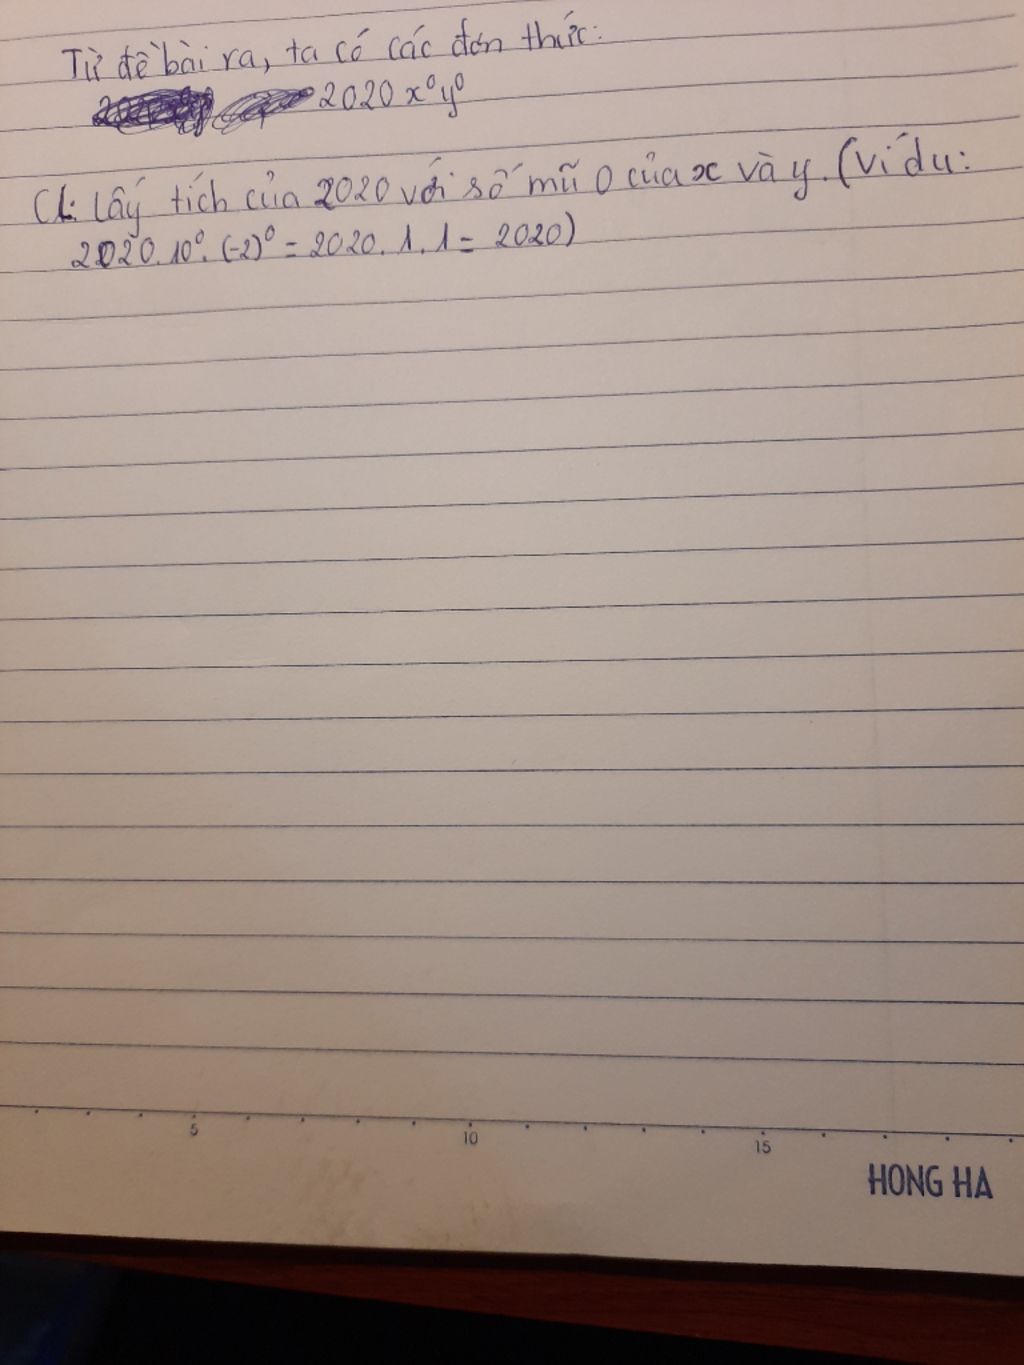 Từ đề bài ra, ta có các đơn thức:
2020 x⁰y⁰
C1: Lấy tích của 2020 với số mũ 0 của x và y. (Ví dụ:
2020. 10⁰. (-2)⁰ = 2020. 1. 1 = 2020)
5 10 15
HONG HA